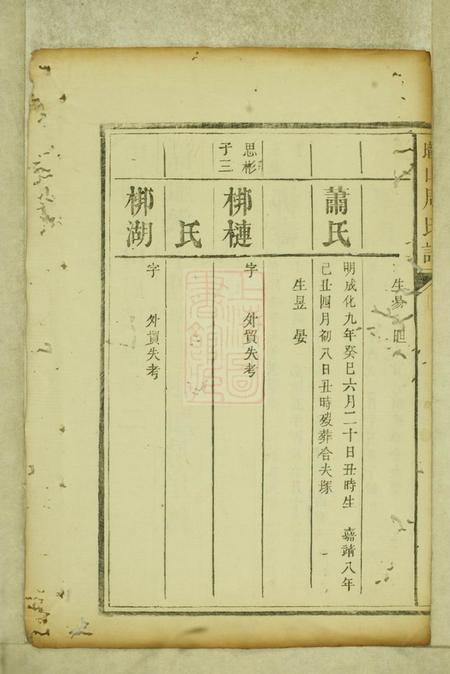 氏譜
生 
蕭氏
明成化九年癸巳六月二十日丑時生 嘉靖八年
己丑四月初八日丑時歿葬合夫塚
生昱 晏
思彬
子三
梆槤
字 外貿失考
氏
梆湖
字 外貿失考